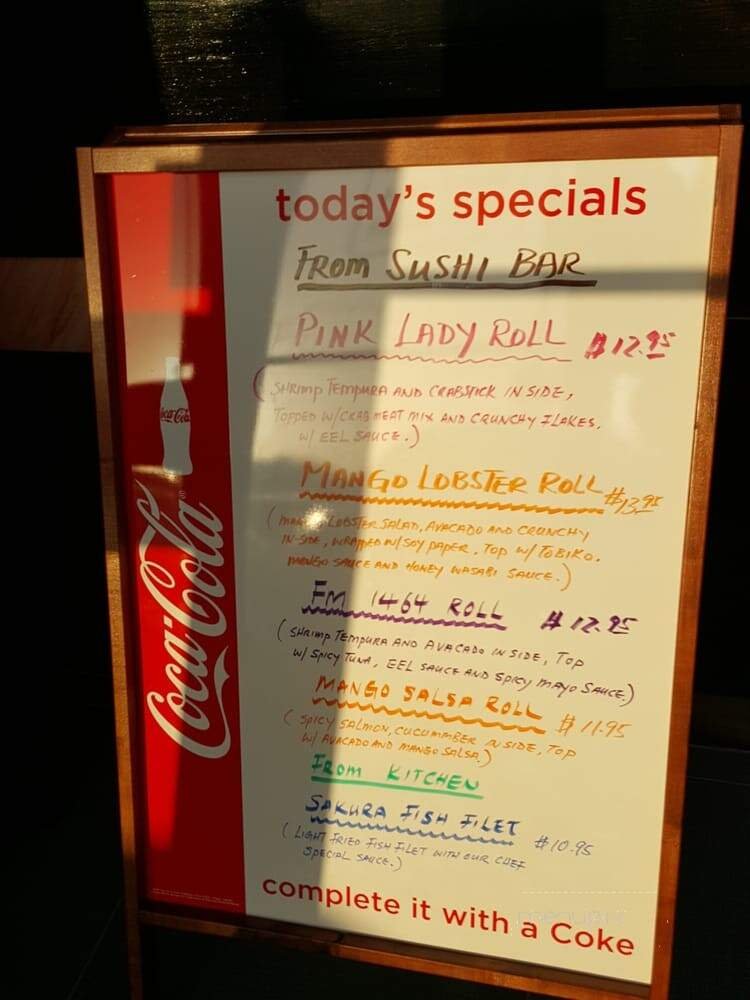 today's specials
FROM SUSHI BAR
PINK LADY ROLL $12.95
(SHRIMP TEMPURA AND CRABSTICK IN SIDE,
TOPPED W/CRAB MEAT MIX AND CRUNCHY FLAKES.
W/ EEL SAUCE.)
MANGO LOBSTER ROLL $13.95
(MANGO LOBSTER SALAD, AVACADO AND CRUNCHY
IN-SIDE, WRAPPED W/ SOY PAPER. TOP W/ TOBIKO.
MANGO SAUCE AND HONEY WASABI SAUCE.)
FM 1464 ROLL $12.95
(SHRIMP TEMPURA AND AVACADO IN SIDE, TOP
W/ SPICY TUNA, EEL SAUCE AND SPICY MAYO SAUCE.)
MANGO SALSA ROLL $11.95
(SPICY SALMON, CUCUMMBER IN SIDE, TOP
W/ AVACADO AND MANGO SALSA.)
FROM KITCHEN
SAKURA FISH FILET $10.95
(LIGHT FRIED FISH FILET WITH OUR CHEF
SPECIAL SAUCE.)
complete it with a Coke
Coca-Cola
Coca-Cola®